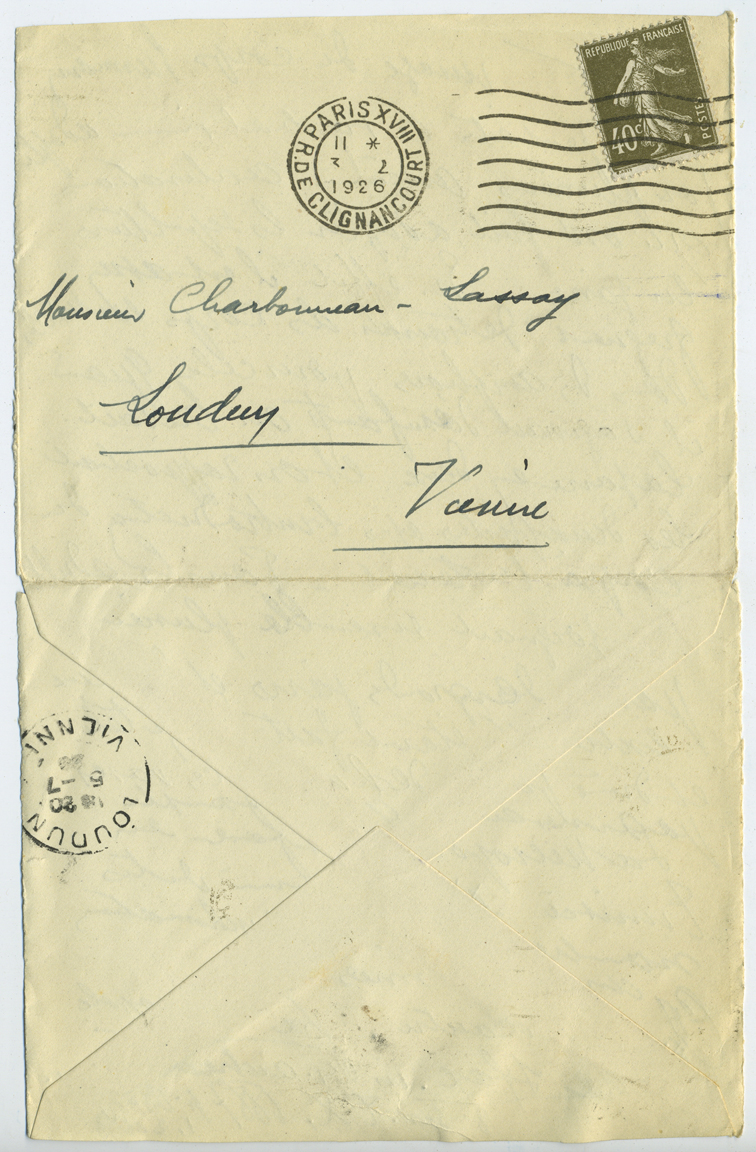 REPUBLIQUE FRANÇAISE
40c
POSTES
PARIS XVIII
11 *
3 2
1926
R. P. DE CLIGNANCOURT
Monsieur Charbonneau - Lassay
Loudun
Vienne
LOUDUN
VIENNE